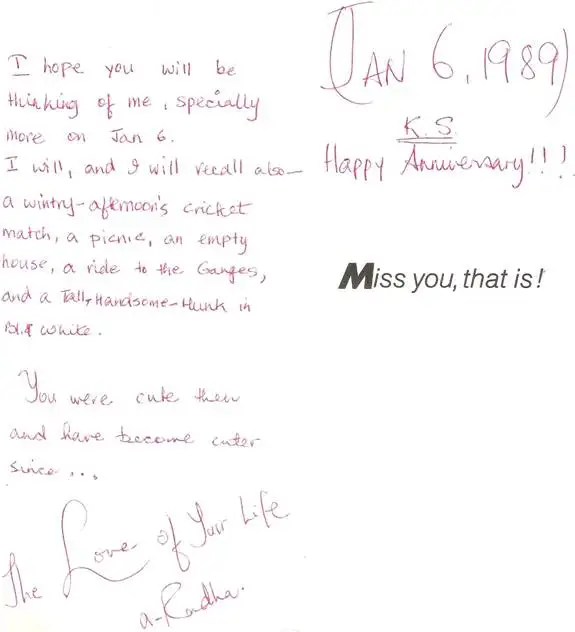 I hope you will be
thinking of me, specially
more on Jan 6.
I will, and I will recall also—
a wintry-afternoon's cricket
match, a picnic, an empty
house, a ride to the Ganges,
and a Tall, Handsome-Hunk in
Bl & White.
You were cute then
and have become cuter
since...
The Love of Your Life
a-Radha.
(JAN 6, 1989)
K.S.
Happy Anniversary!!!
Miss you, that is!